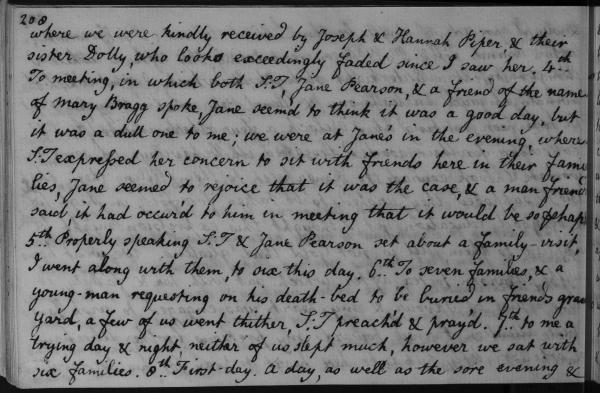 208
where we were kindly received by Joseph & Hannah Piper, & their
sister Dolly, who looks exceedingly faded since I saw her. 4th
To meeting, in which both S.T, Jane Pearson, & a friend of the name
of Mary Bragg spoke, Jane seem'd to think it was a good day, but
it was a dull one to me; we were at Jane's in the evening, where
S.T expressed her concern to sit with friends here in their fami
lies, Jane seemed to rejoice that it was the case, & a man friend
said, it had occur'd to him in meeting that it would be so
5th Properly speaking S.T & Jane Pearson set about a family-visit,
I went along with them, to six this day. 6th To seven families, & a
young-man requesting on his death-bed to be buried in friends grave
yard, a few of us went thither, S.T preach'd & pray'd. 7th to me a
trying day & night, neither of us slept much, however we sat with
six families. 8th First-day. A day, as well as the sore evening &